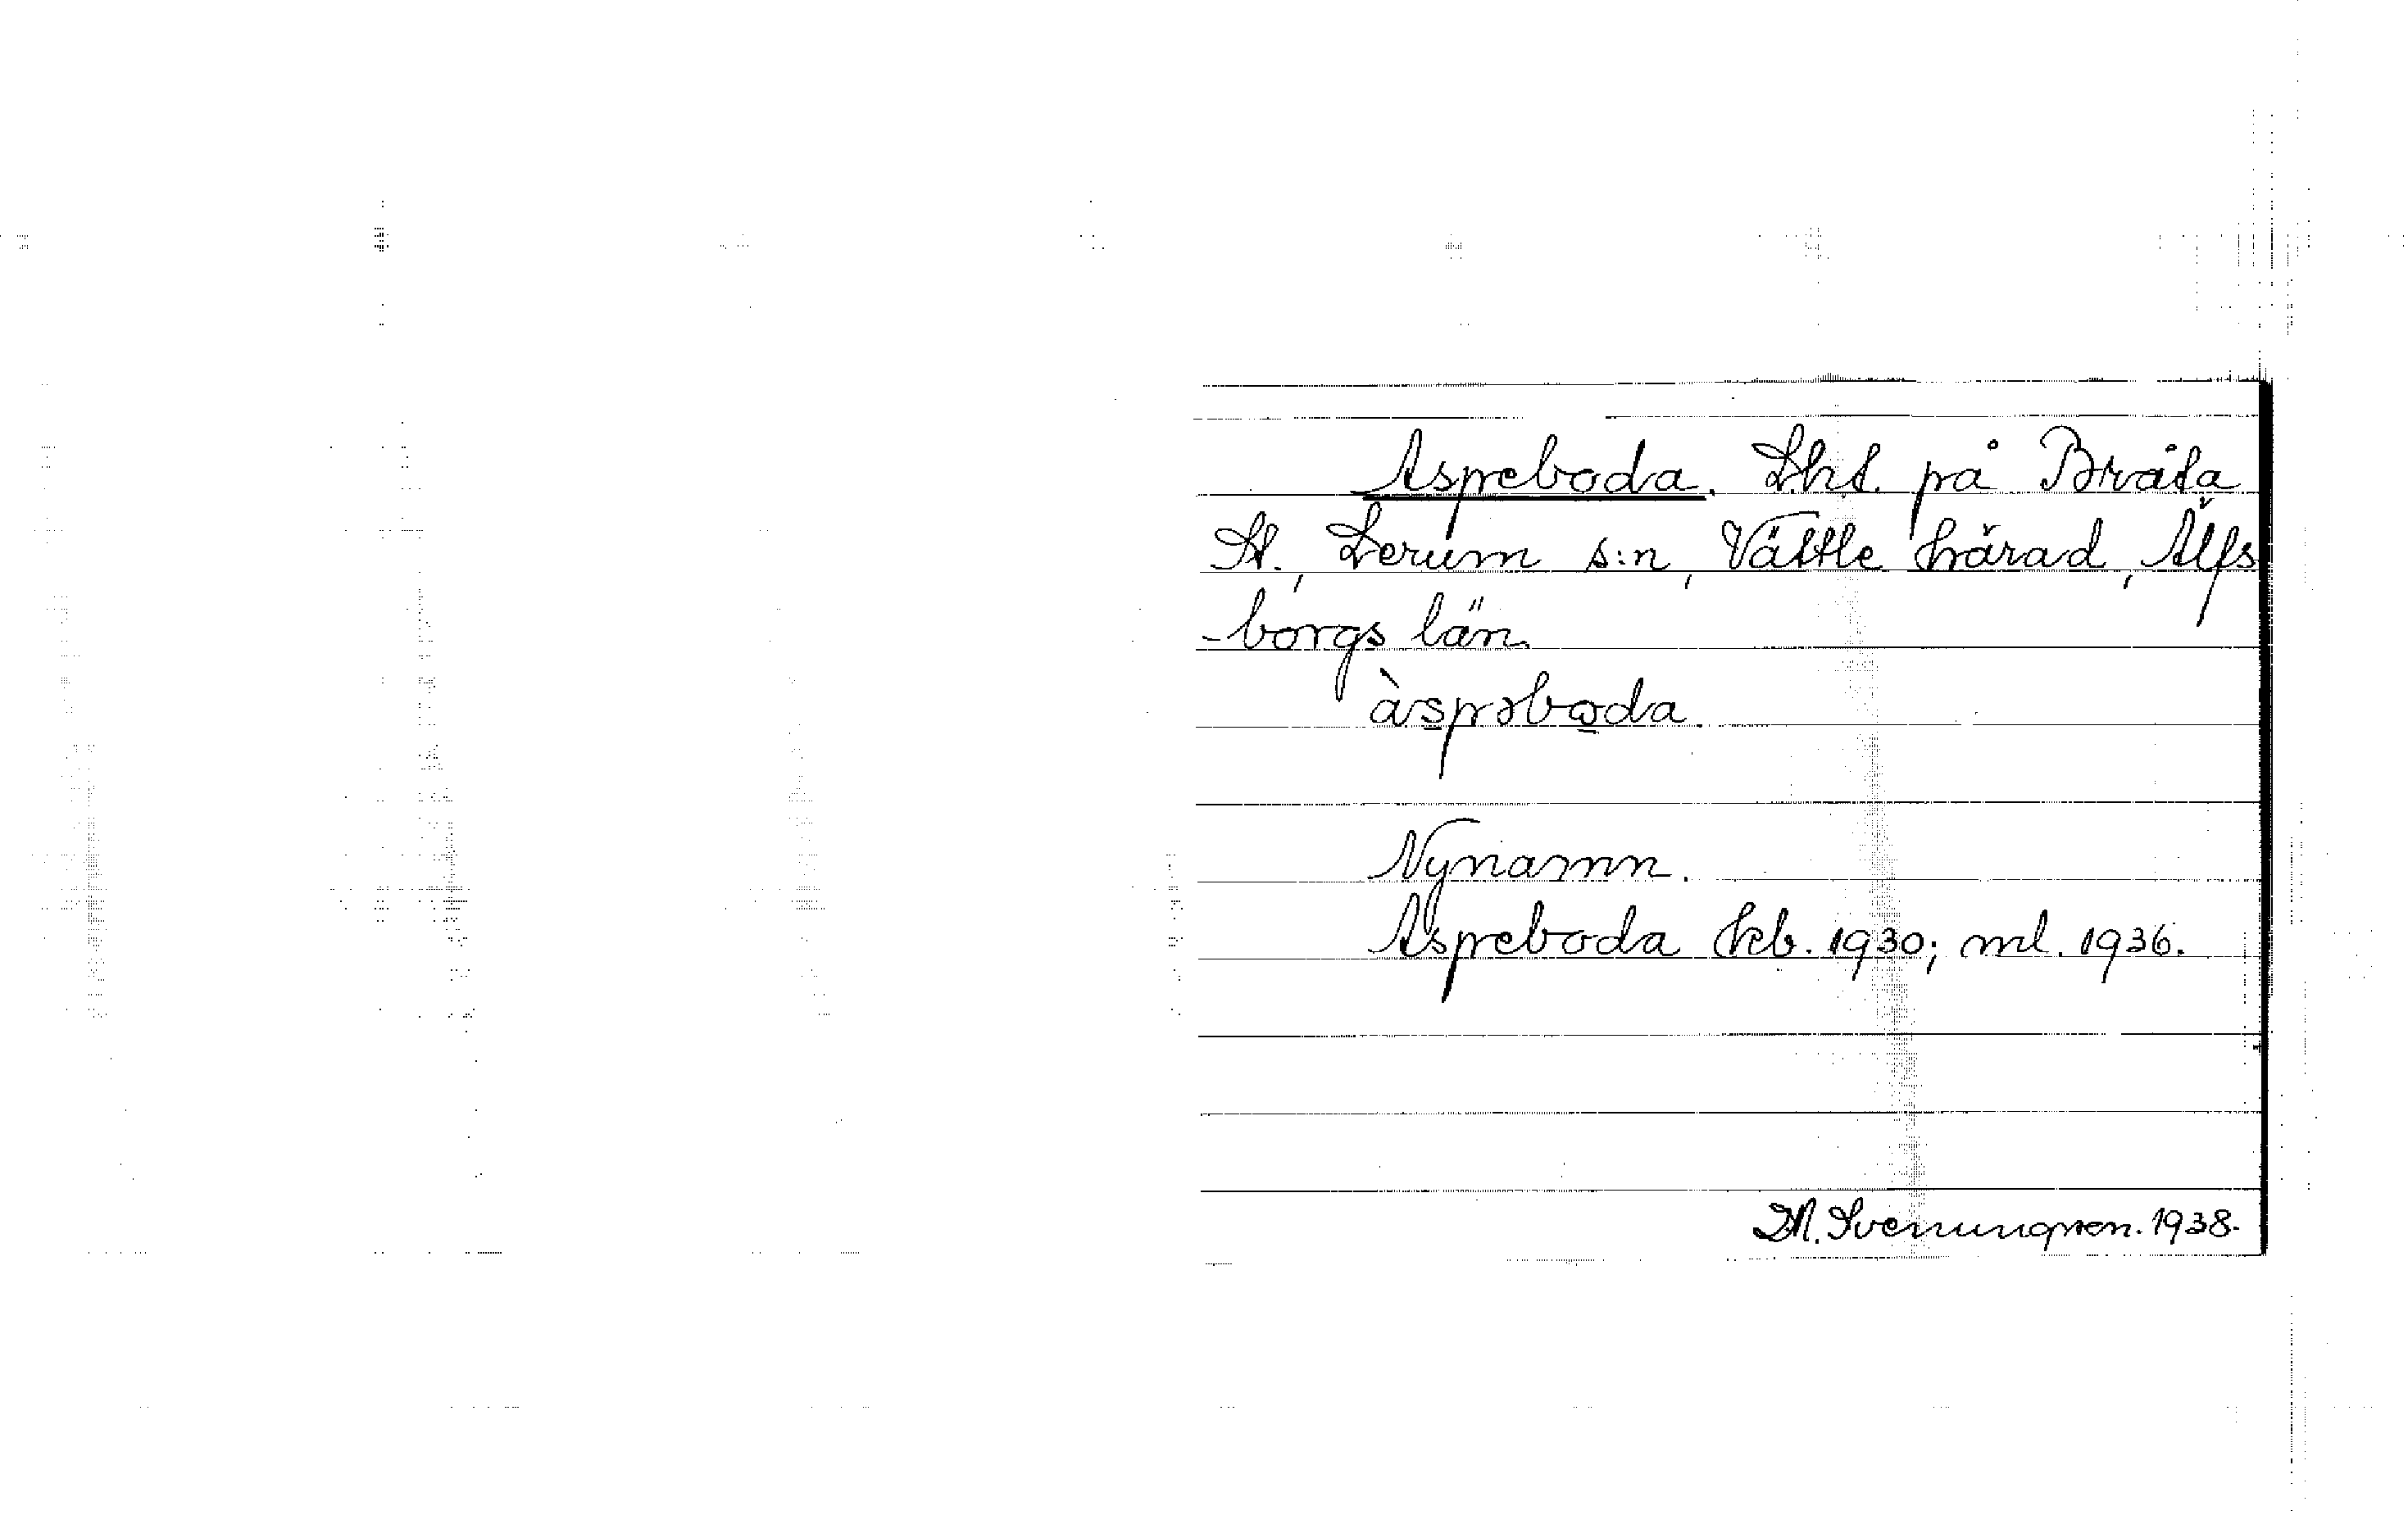 Aspeboda. Lht. på Bråta
St., Lerum s:n, Vättle härad, Älfs
-borgs län.
àspəboda.
Nynamn.
Aspeboda kb. 1930; ml. 1936.
M. Svenungsson. 1938.